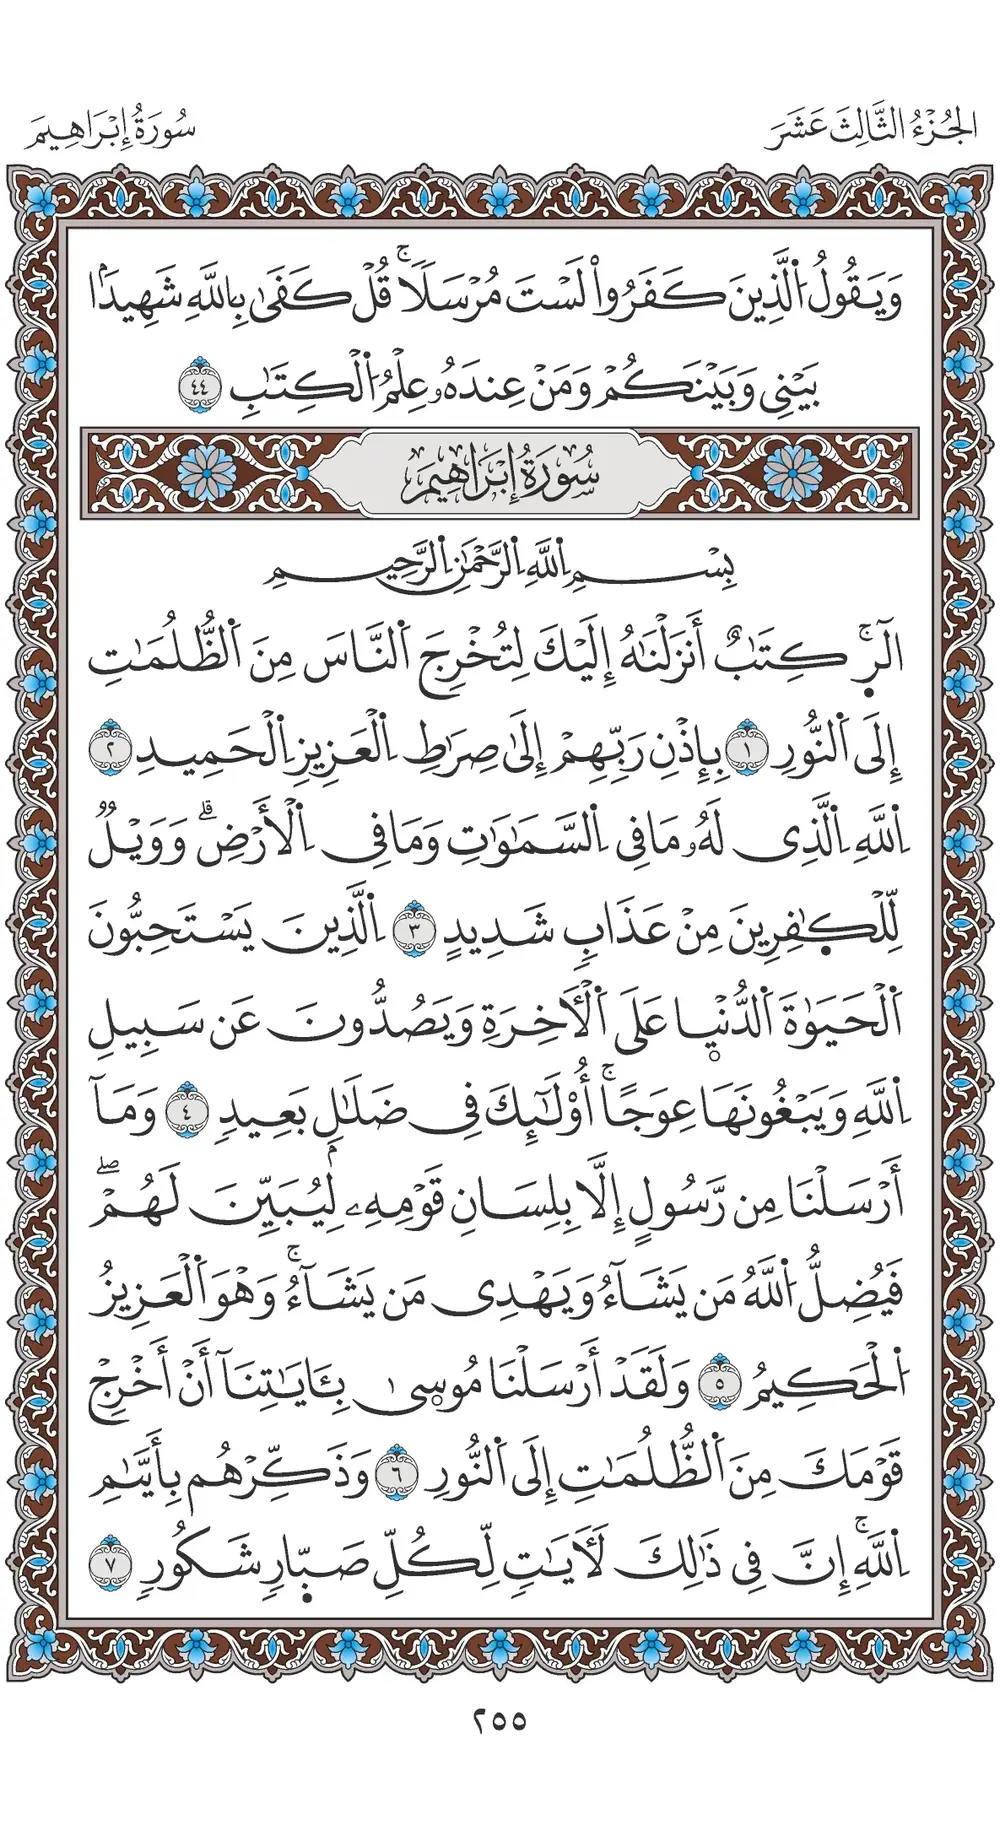 الجُزْءُ الثَّالِثَ عَشَرَ
سُورَةُ إِبْرَاهِيمَ
وَيَقُولُ اُ۬لَّذِينَ كَفَرُواْ لَسْتَ مُرْسَلٗاۚ قُلْ كَفَىٰ بِاللَّهِ شَهِيدَۢا
بَيْنِي وَبَيْنَكُمْ وَمَنْ عِندَهُۥ عِلْمُ اُ۬لْكِتَٰبِ ٤٤
سُورَةُ إِبْرَاهِيمَ
بِسْمِ اِ۬للَّهِ اِ۬لرَّحْمَٰنِ اِ۬لرَّحِيمِ
الٓرۚ كِتَٰبٌ أَنزَلْنَٰهُ إِلَيْكَ لِتُخْرِجَ اَ۬لنَّاسَ مِنَ اَ۬لظُّلُمَٰتِ
إِلَى اَ۬لنُّورِ ١ بِإِذْنِ رَبِّهِمْ إِلَىٰ صِرَٰطِ اِ۬لْعَزِيزِ اِ۬لْحَمِيدِ ٢
اِ۬للَّهِ اِ۬لَّذِي لَهُۥ مَا فِي اِ۬لسَّمَٰوَٰتِ وَمَا فِي اِ۬لْأَرْضِۗ وَوَيْلٞ
لِّلْكٰ۪فِرِينَ مِنْ عَذَابٖ شَدِيدٍ ٣ اِ۬لَّذِينَ يَسْتَحِبُّونَ
اَ۬لْحَيَوٰةَ اَ۬لدُّنْيۭا عَلَى اَ۬لْأٓخِرَةِ وَيَصُدُّونَ عَن سَبِيلِ
اِ۬للَّهِ وَيَبْغُونَهَا عِوَجًاۚ أُوْلَٰٓئِكَ فِي ضَلَٰلِۢ بَعِيدٖ ٤ وَمَآ
أَرْسَلْنَا مِن رَّسُولٍ إِلَّا بِلِسَانِ قَوْمِهِۦ لِيُبَيِّنَ لَهُمْۖ
فَيُضِلُّ اُ۬للَّهُ مَن يَشَآءُ وَيَهْدِي مَن يَشَآءُۚ وَهْوَ اَ۬لْعَزِيزُ
اُ۬لْحَكِيمُ ٥ وَلَقَدْ أَرْسَلْنَا مُوسۭىٰ بِـَٔايَٰتِنَآ أَنْ أَخْرِجْ
قَوْمَكَ مِنَ اَ۬لظُّلُمَٰتِ إِلَى اَ۬لنُّورِ ٦ وَذَكِّرْهُم بِأَيَّىٰمِ
اِ۬للَّهِۚ إِنَّ فِي ذَٰلِكَ لَأٓيَٰتٖ لِّكُلِّ صَبّ۪ارٖ شَكُورٖ ٧
٢٥٥